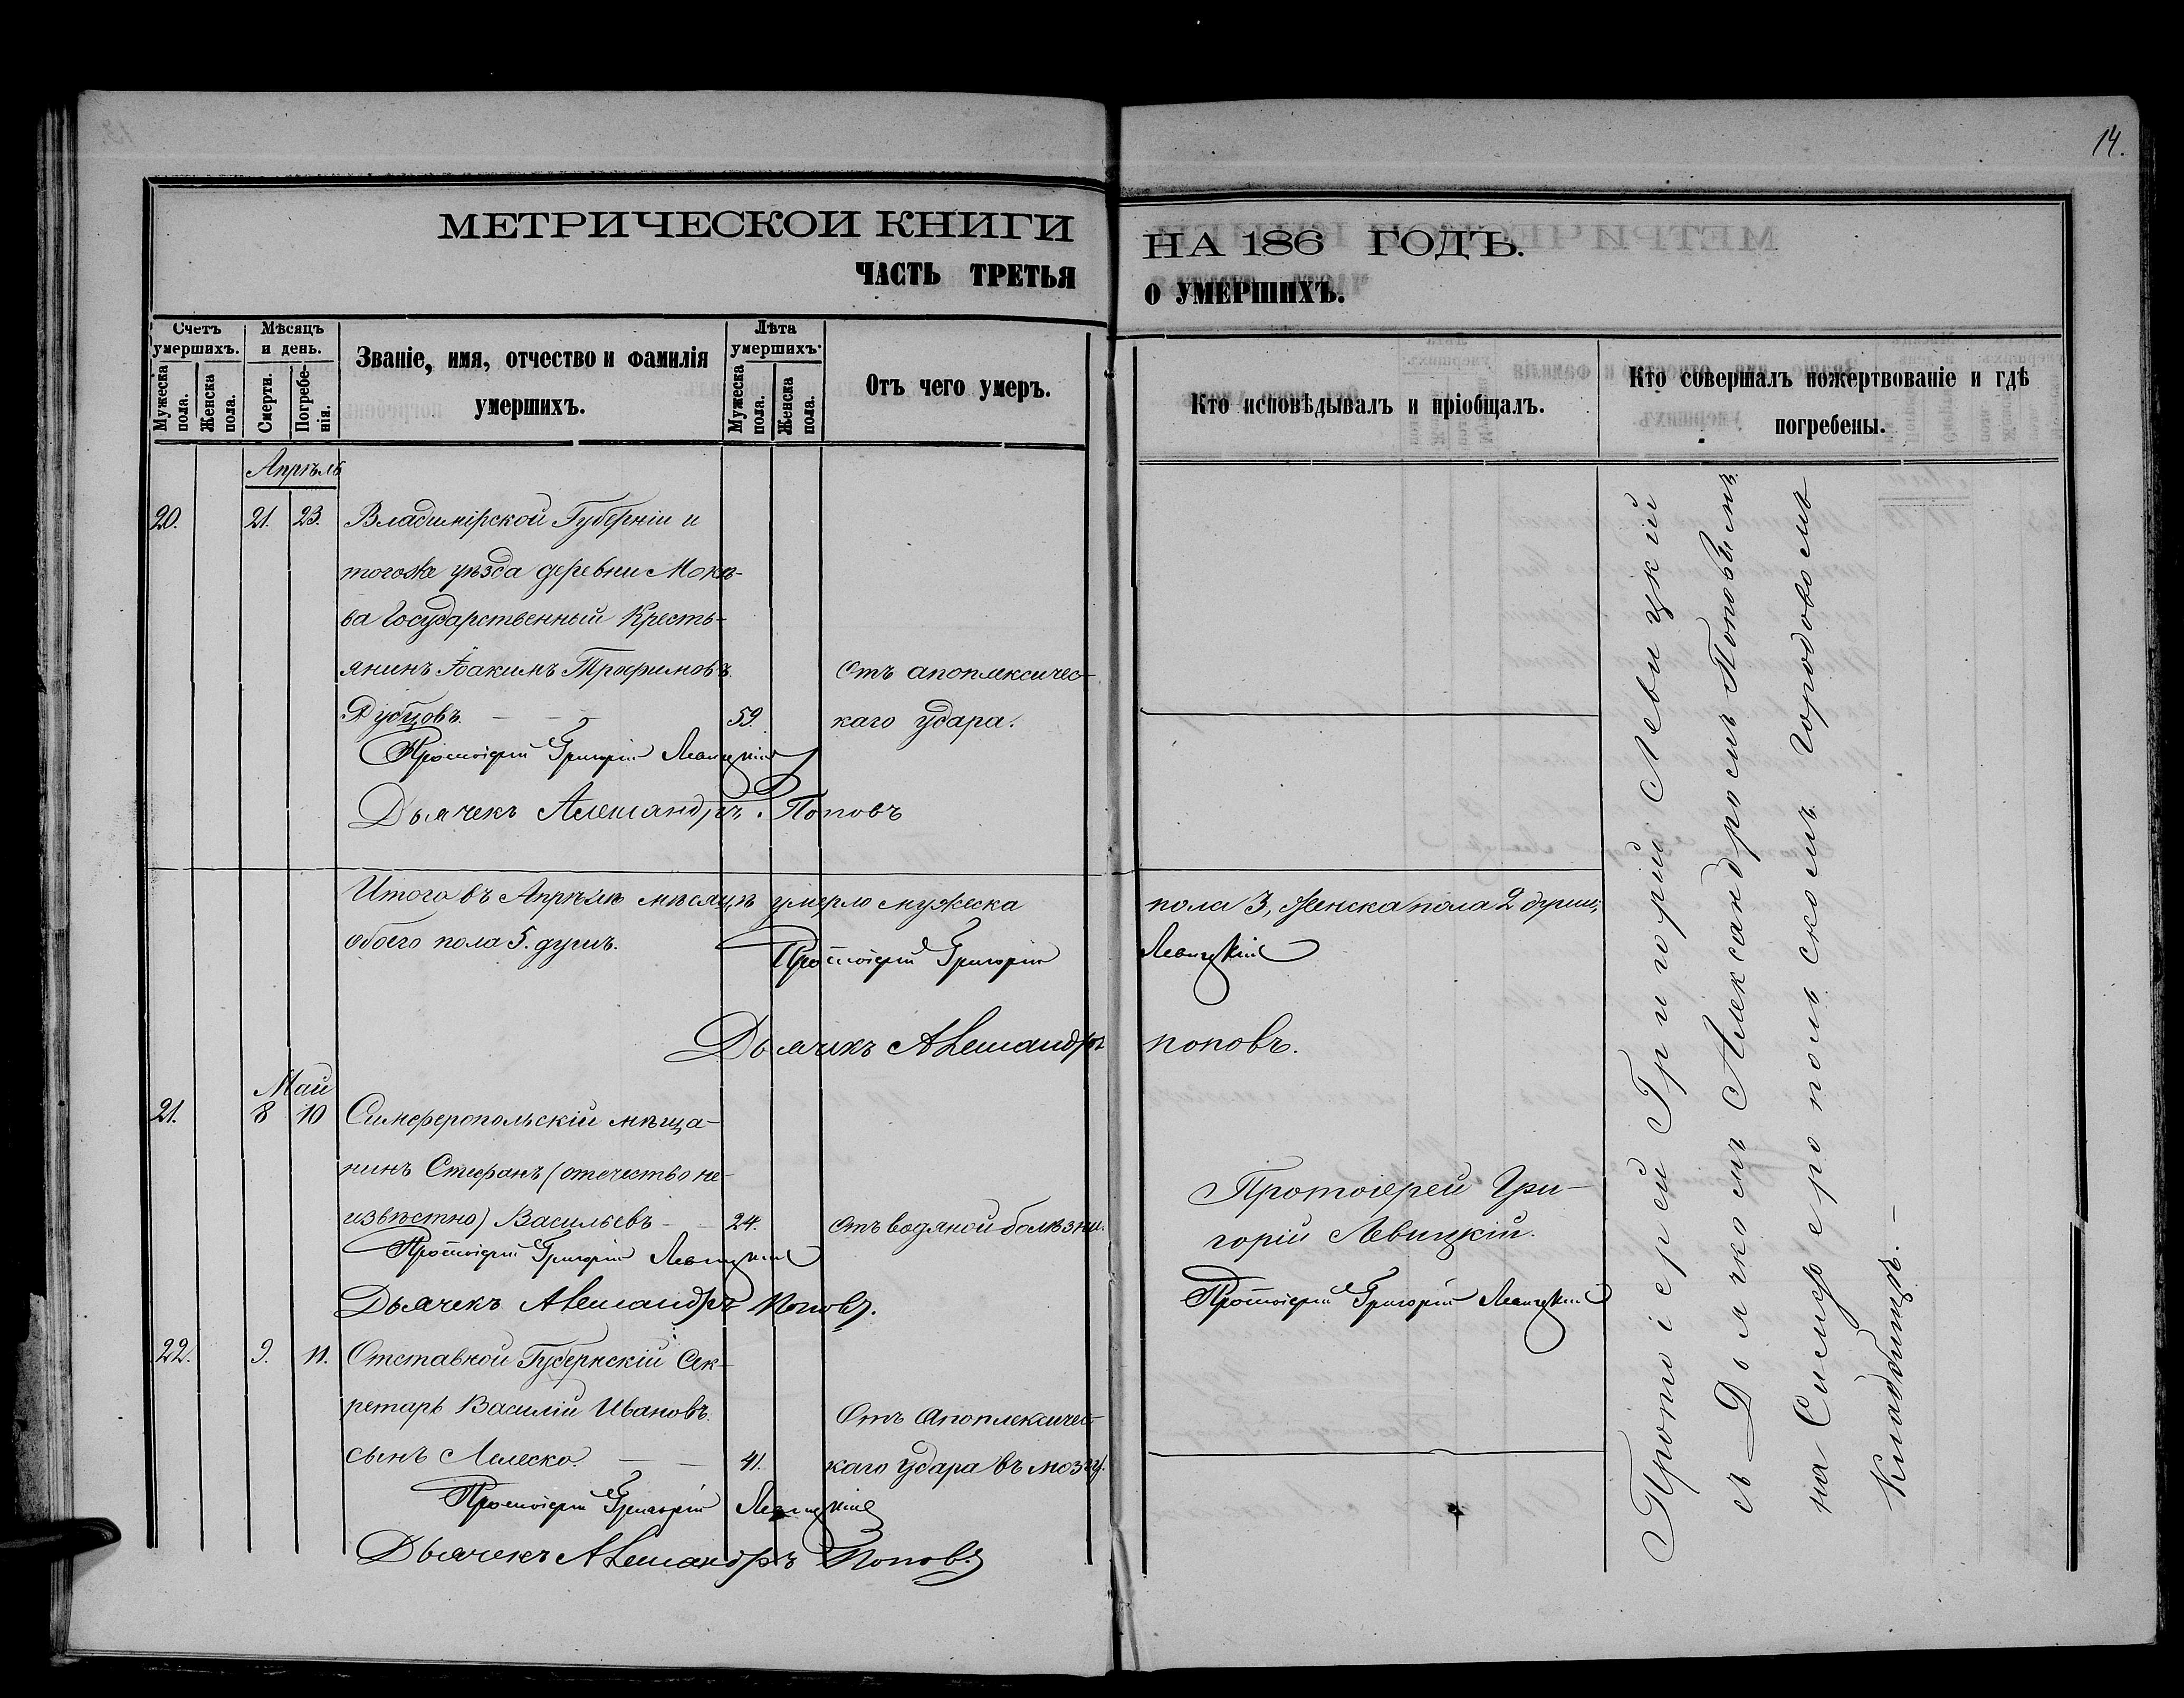 14.
МЕТРИЧЕСКОИ КНИГИ НА 186 ГОДЪ.
ЧАСТЬ ТРЕТЬЯ О УМЕРШИХЪ.
Счетъ умершихъ.
Мужеска пола.
Женска пола.
Мѣсяцъ и день.
Смерти.
Погребенія.
Званіе, имя, отчество и фамилія
умершихъ.
Лѣта умершихъ.
Мужеска пола.
Женска пола.
Отъ чего умеръ.
Кто исповѣдывалъ и пріобщалъ.
Кто совершалъ пожертвованіе и гдѣ
погребены.
Апрѣль
20. 21. 23. Владимірской Губерніи и
тогоже уѣзда деревни
Государственный Кресть-
янинъ Іоакимъ Трофимовъ Отъ апоплексичес-
59. каго удара.
Протоіерей Григорій Левицкій
Дьячекъ Александръ Поповъ
Итого въ Апрѣлѣ мѣсяцѣ умерло мужеска пола 3, женска пола 2 души,
обоего пола 5. душъ.
Протоіерей Григорій Левицкій
Дьячекъ Александръ Поповъ.
Май
21. 8 10 Симферопольскій мѣща-
нинъ Стефанъ (отечество не-
извѣстно) Васильевъ 24. Отъ водяной болѣзни.
Протоіерей Григорій Левицкій
Дьячекъ Александръ Поповъ.
Протоіерей Гри-
горій Левицкій.
Протоіерей Григорій Левицкій
22. 9. 11. Отставной Губернскій Сек-
ретарь Василій Ивановъ Отъ Апоплексичес-
сынъ Лелеско. 41. каго удара въ мозгу.
Протоіерей Григорій Левицкій
Дьячекъ Александръ Поповъ
Протоіерей Григорій Левицкій
съ Дьячкомъ Александромъ Поповымъ
на Симферопольскомъ городовомъ
Кладбищѣ.